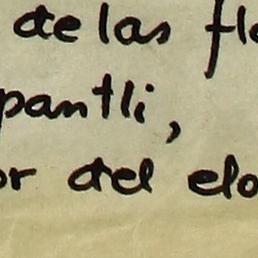 de las fl
pantli,
or del elo